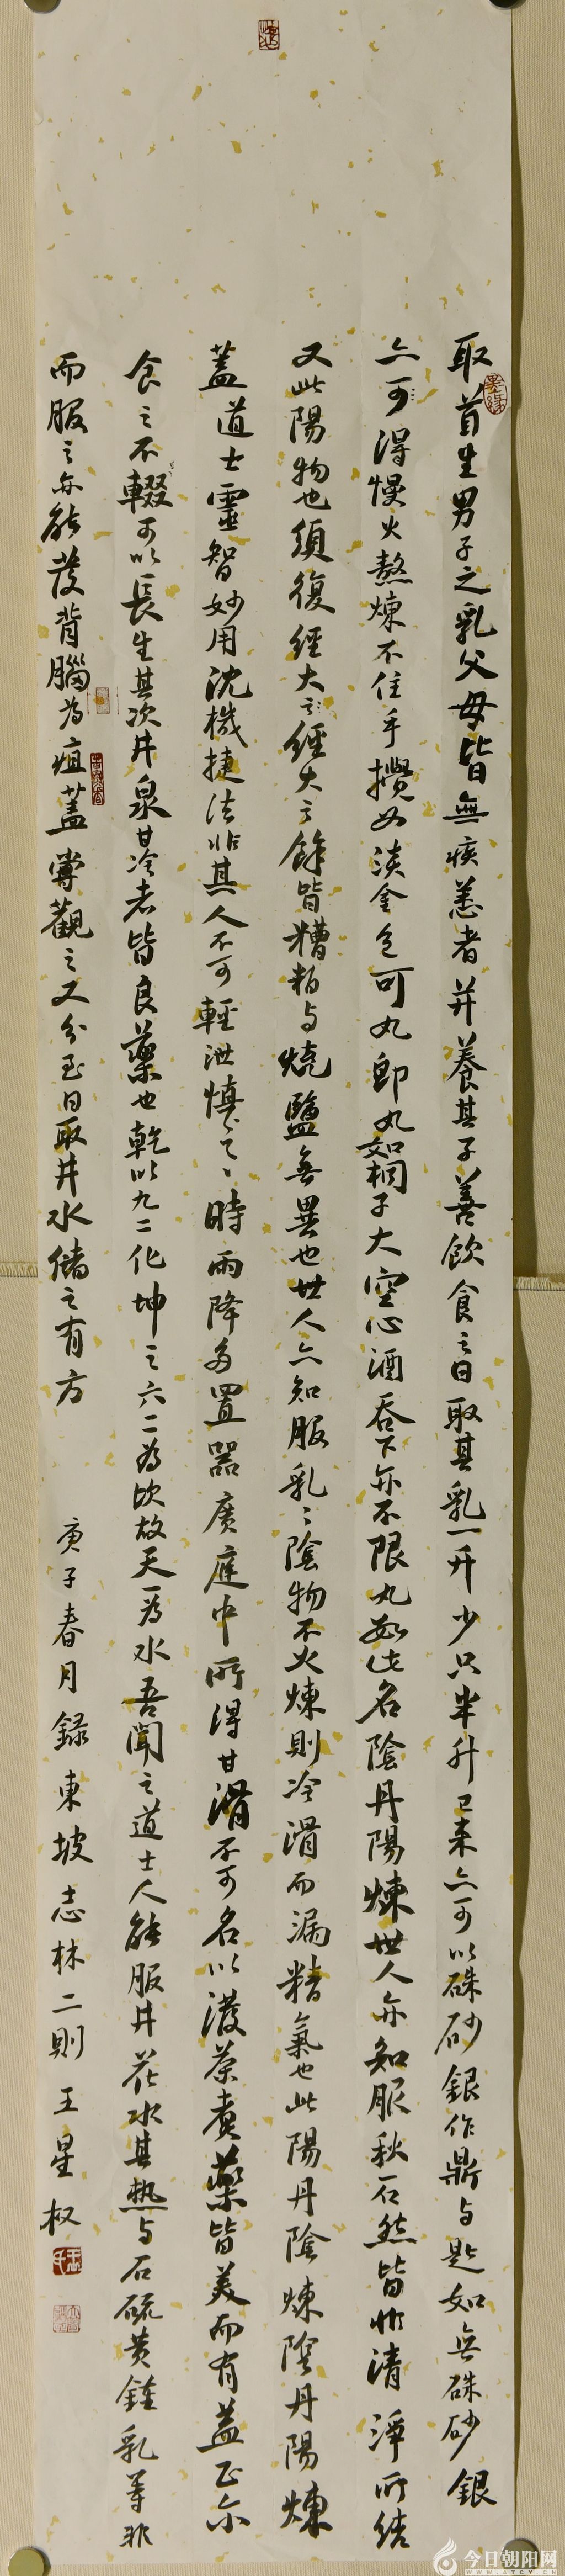 取首生男子之乳父母皆無疾恙者并養其子善飲食之日取其乳一升少只半升已来亦可以硃砂銀作鼎与匙如無硃砂銀
亦可得慢火熬煉不住手攪如淡金色可丸即丸如桐子大空心酒吞下亦不限丸數此名陰丹陽煉世人亦知服秋石然皆非清淨所结
又此陽物也須復經火經火之餘皆糟粕与燒鹽無異也世人亦知服乳乳陰物不火煉則冷滑而漏精氣也此陽丹陰煉陰丹陽煉
蓋道士靈智妙用沈機捷法非其人不可輕泄慎之慎之時雨降多置器廣庭中所得甘滑不可名以潑茶煮藥皆美而有益正尔
食之不輟可以長生其次井泉甘冷者皆良藥也乾以九二化坤之六二為坎故天一為水吾聞之道士人能服井花水其热与石硫黄鍾乳等非
而服之亦能發背腦為疽蓋嘗觀之又分至日取井水儲之有方
庚子春月録東坡志林二則 王星权
今日朝阳网